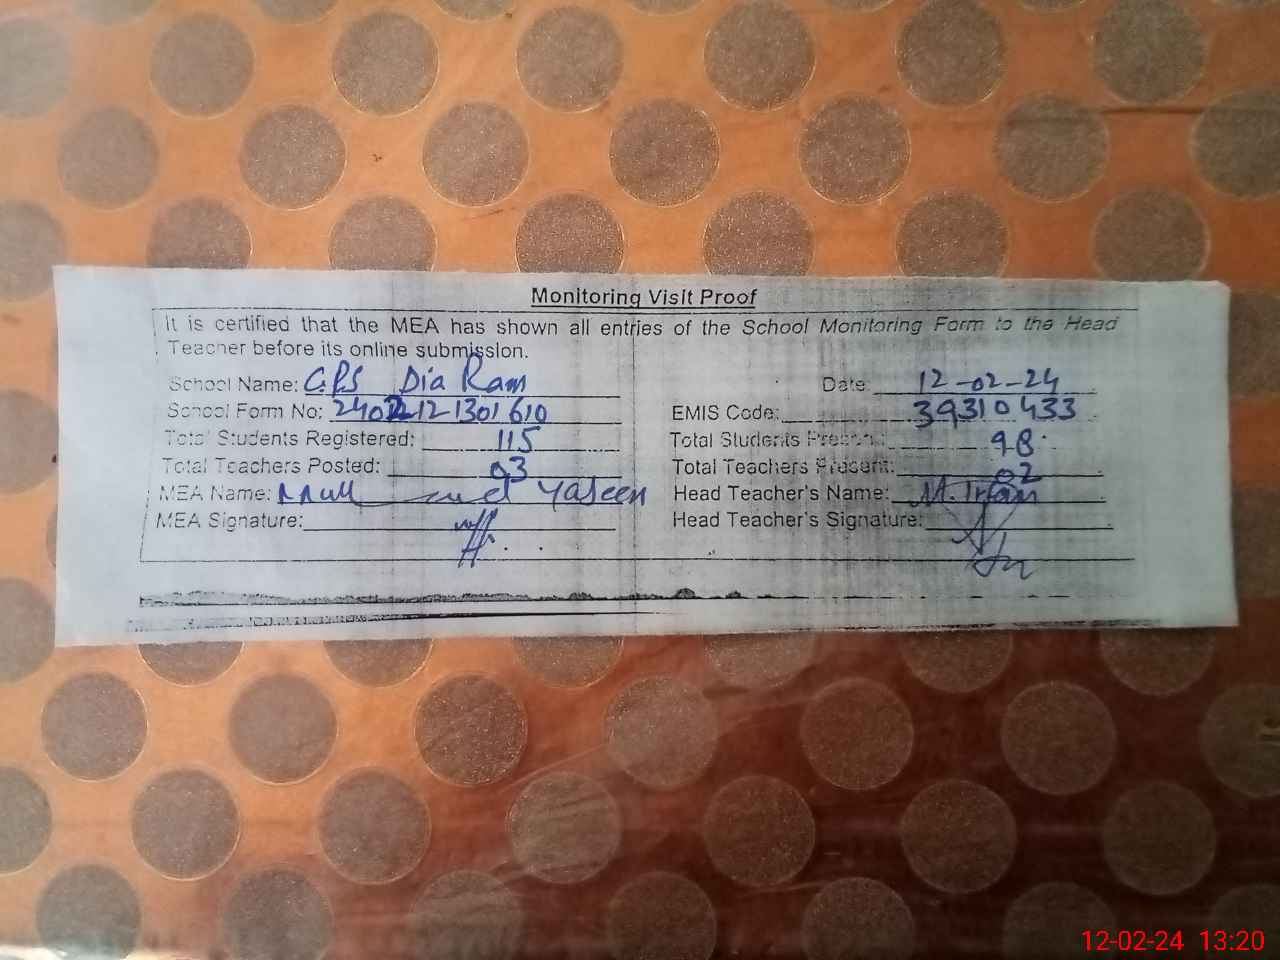 Monitoring Visit Proof
It is certified that the MEA has shown all entries of the School Monitoring Form to the Head
Teacher before its online submission.
School Name: GPS Dia Ram Date: 12-02-24
School Form No: 2402121301610 EMIS Code: 39310433
Total Students Registered: 115 Total Students Present: 98
Total Teachers Posted: 03 Total Teachers Present: 02
MEA Name: Yaseen Head Teacher's Name: M. Irfan
MEA Signature: Head Teacher's Signature:
12-02-24 13:20